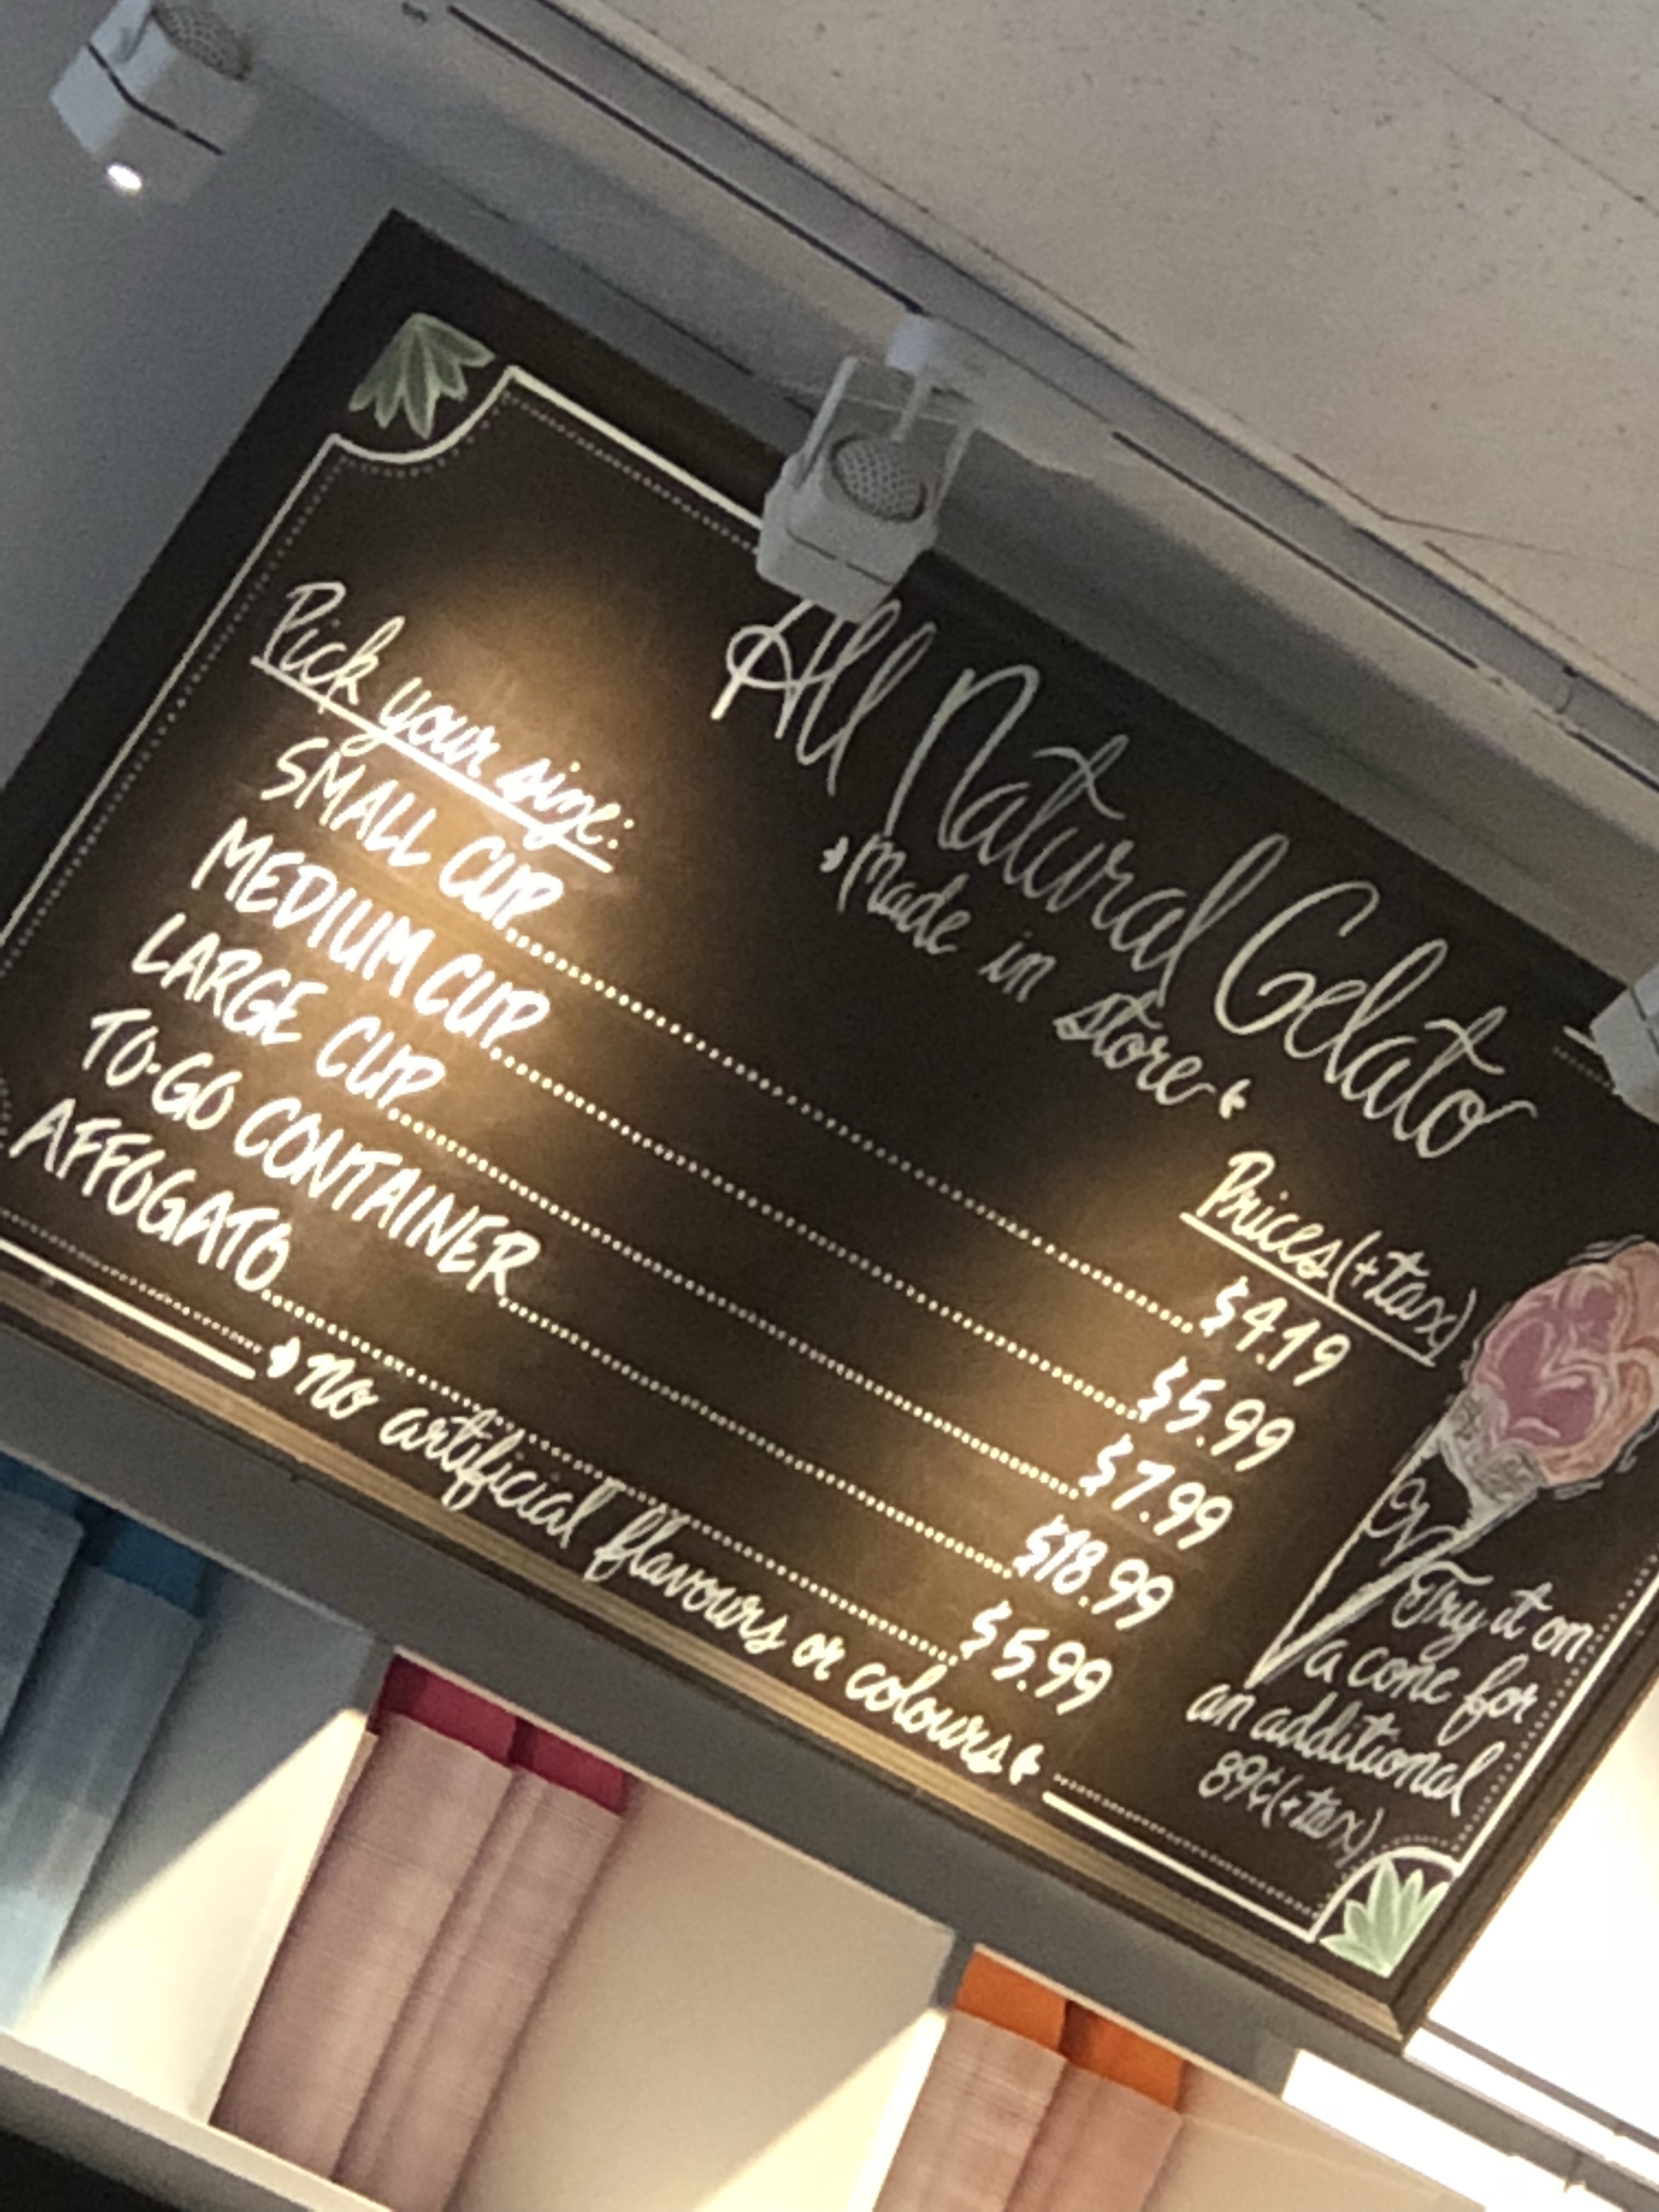 All Natural Gelato
Made in store
Pick your size: Prices (+tax)
SMALL CUP $4.19
MEDIUM CUP $5.99
LARGE CUP $7.99
TO-GO CONTAINER $18.99
AFFOGATO $5.99
no artificial flavours or colours
Try it on
a cone for
an additional
89¢ (+tax)